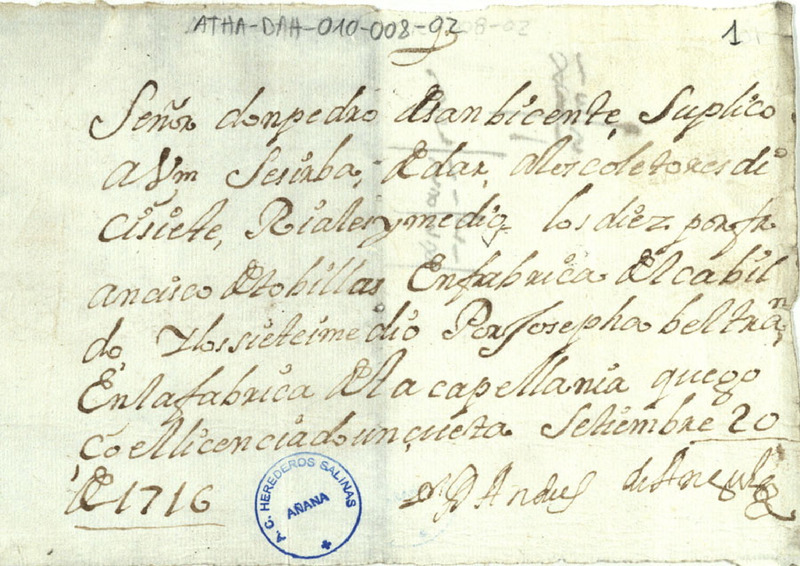 ATHA-DAH-010-008-92
1
Señor don pedro de san bicente Suplico
a Vm Sesirba, de dar, a los coletores di
cisiete, Riales y medio los diez por fr
ancisco de tobillas En fabrica del cabil
do Y los sieteimedio Por Josepha beltran
En la fabrica de la capellania que go
ço el licenciado unçueta Setiembre 20
de 1716
Andres de Angulo
A.C. HEREDEROS SALINAS
AÑANA